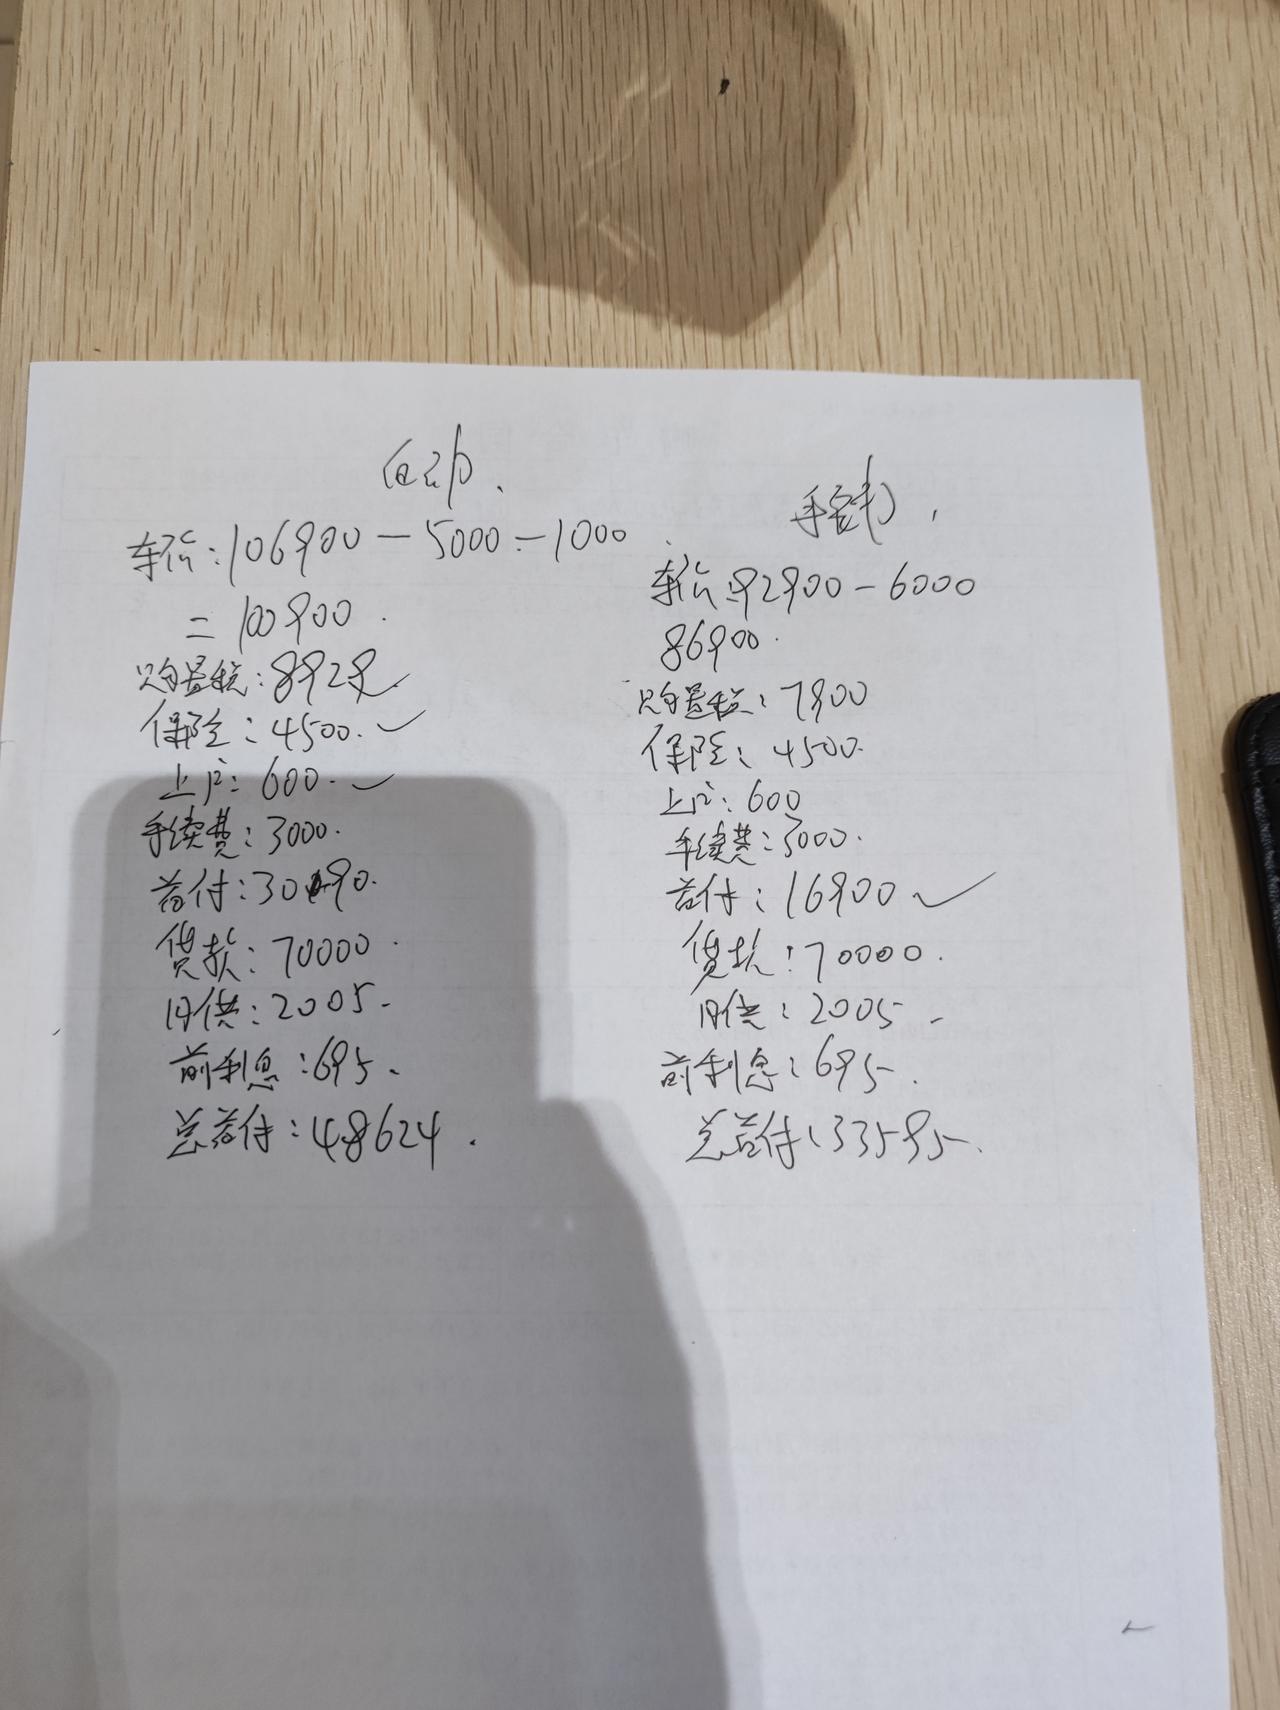 自动.
车价:106900-5000-1000
=100900.
购置税:8929
保险:4500.
上户:600.
手续费:3000.
首付:30900.
贷款:70000.
月供:2005.
前利息:695.
总首付:48624.
手动.
车价:92900-6000
86900.
购置税:7900
保险:4500.
上户:600
手续费:3000.
首付:16900
贷款:70000.
月供:2005
前利息:695.
总首付:33595.